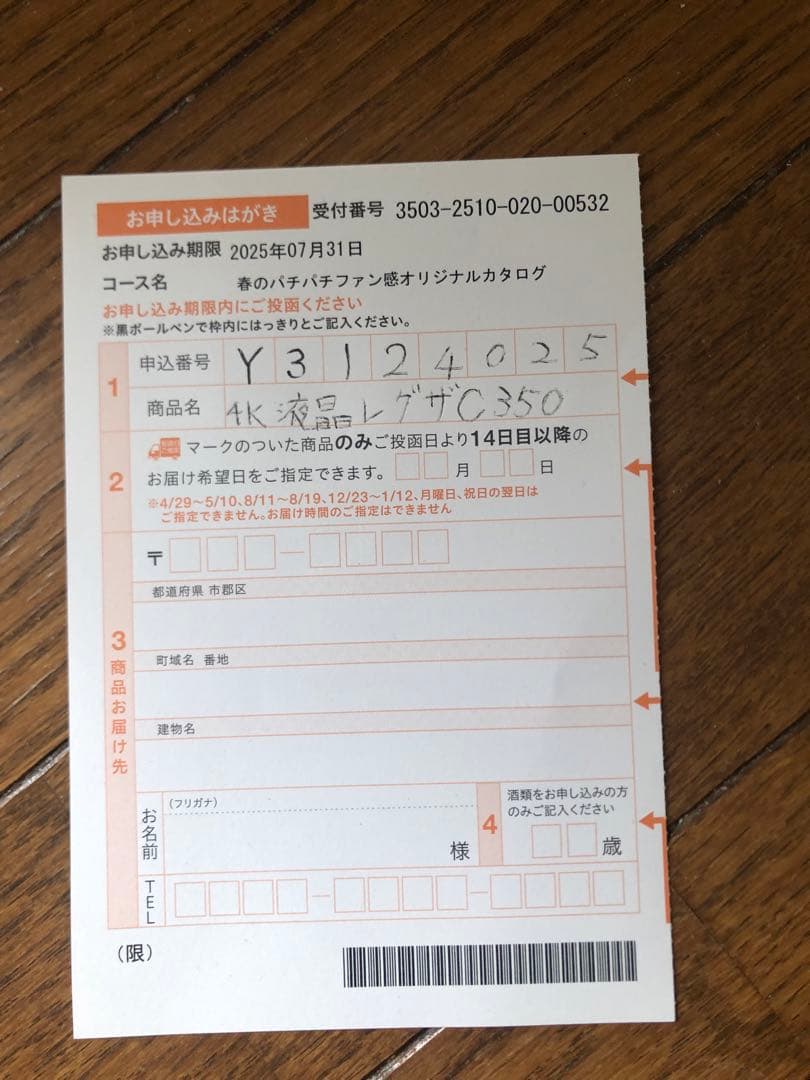 お申し込みはがき 受付番号 3503-2510-020-00532
お申し込み期限 2025年07月31日
コース名 春のパチパチファン感オリジナルカタログ
お申し込み期限内にご投函ください
※黒ボールペンで枠内にはっきりとご記入ください。
1 申込番号 Y3124025
商品名 4K液晶レグザC350
2 マークのついた商品のみご投函日より14日目以降の
お届け希望日をご指定できます。 月 日
※4/29～5/10、8/11～8/19、12/23～1/12、月曜日、祝日の翌日は
ご指定できません。お届け時間のご指定はできません
3 商品お届け先
〒 ―
都道府県 市郡区
町域名 番地
建物名
お名前
(フリガナ)
様
4 酒類をお申し込みの方
のみご記入ください
歳
TEL ― ―
(限)